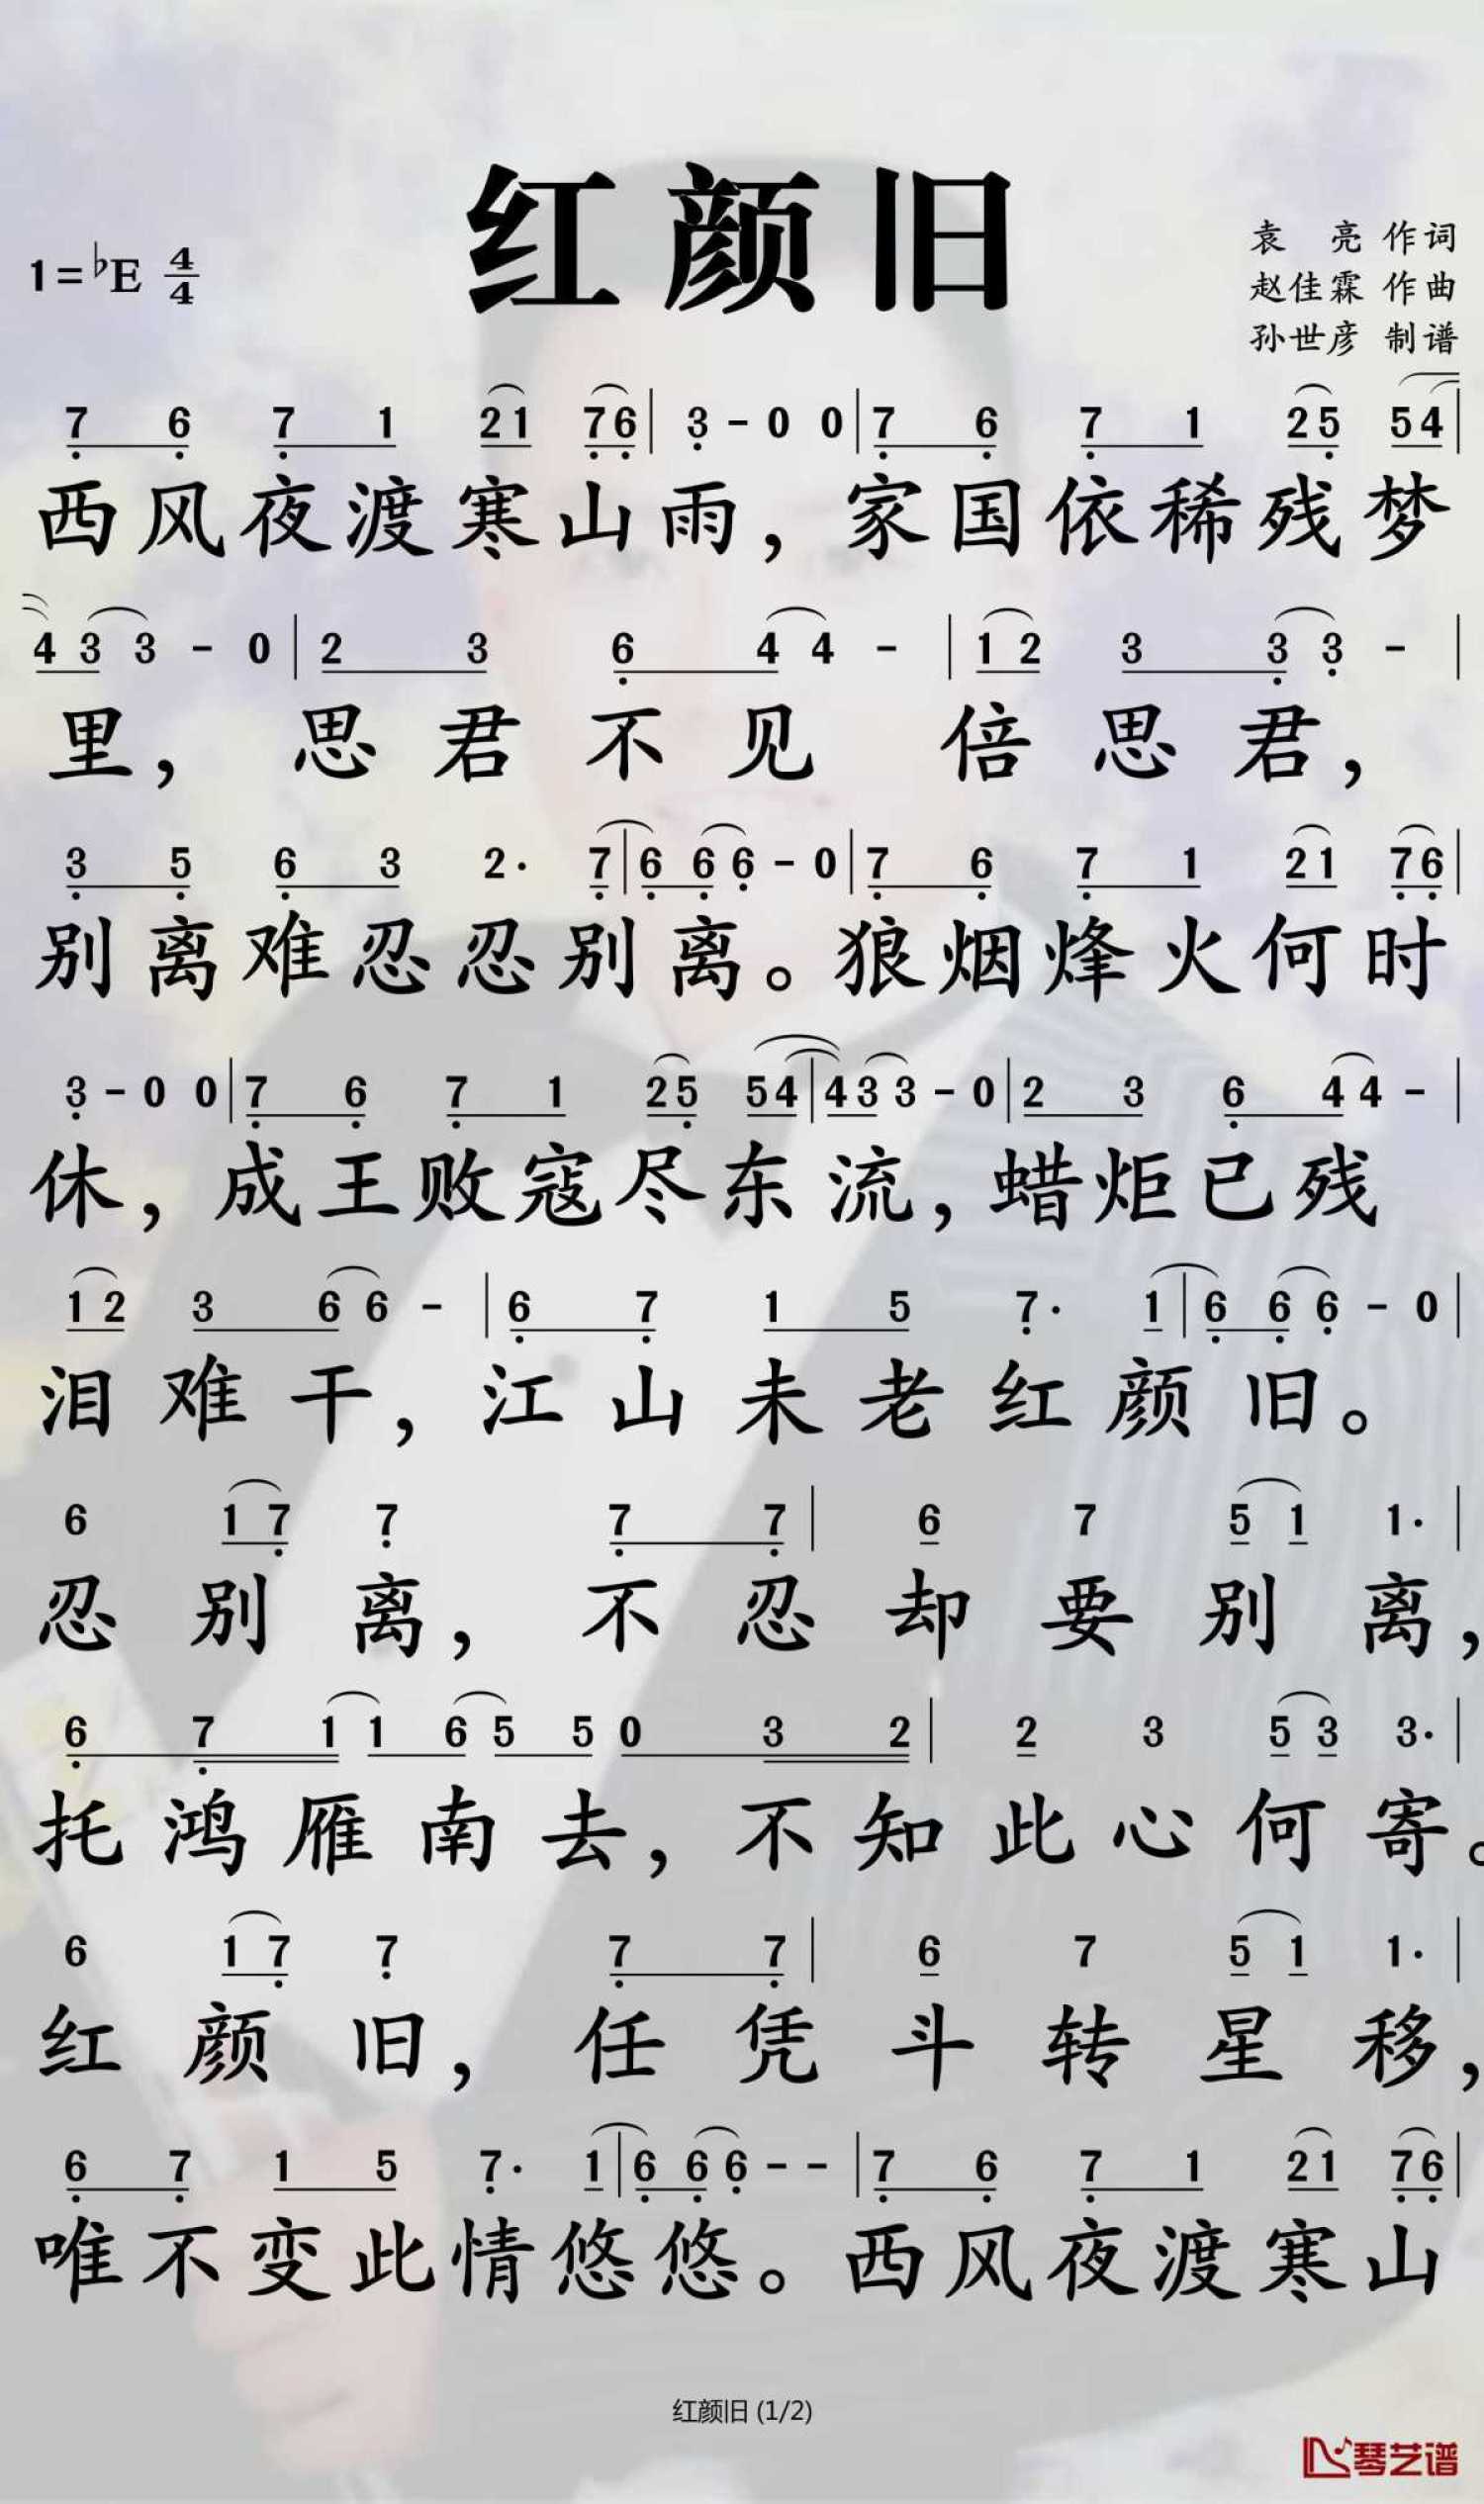 红颜旧
1=♭E 4/4
袁 亮 作词
赵佳霖 作曲
孙世彦 制谱
7 6 7 1 21 76 | 3 - 0 0 | 7 6 7 1 25 54 |
西风夜渡寒山雨，家国依稀残梦
4 3 3 - 0 | 2 3 6 4 4 - | 1 2 3 3 3 - |
里，思君不见 倍思君，
3 5 6 3 2· 7 | 6 6 6 - 0 | 7 6 7 1 21 76 |
别离难忍忍别离。狼烟烽火何时
3 - 0 0 | 7 6 7 1 25 54 | 4 3 3 - 0 | 2 3 6 4 4 - |
休，成王败寇尽东流，蜡炬已残
1 2 3 6 6 - | 6 7 1 5 7· 1 | 6 6 6 - 0 |
泪难干，江山未老红颜旧。
6 1 7 7 7 7 | 6 7 5 1 1· |
忍别离，不忍却要别离，
6 7 1 1 6 5 5 0 3 2 | 2 3 5 3 3· |
托鸿雁南去，不知此心何寄。
6 1 7 7 7 7 | 6 7 5 1 1· |
红颜旧，任凭斗转星移，
6 7 1 5 7· 1 | 6 6 6 - - | 7 6 7 1 21 76 |
唯不变此情悠悠。西风夜渡寒山
红颜旧 (1/2)
琴艺谱